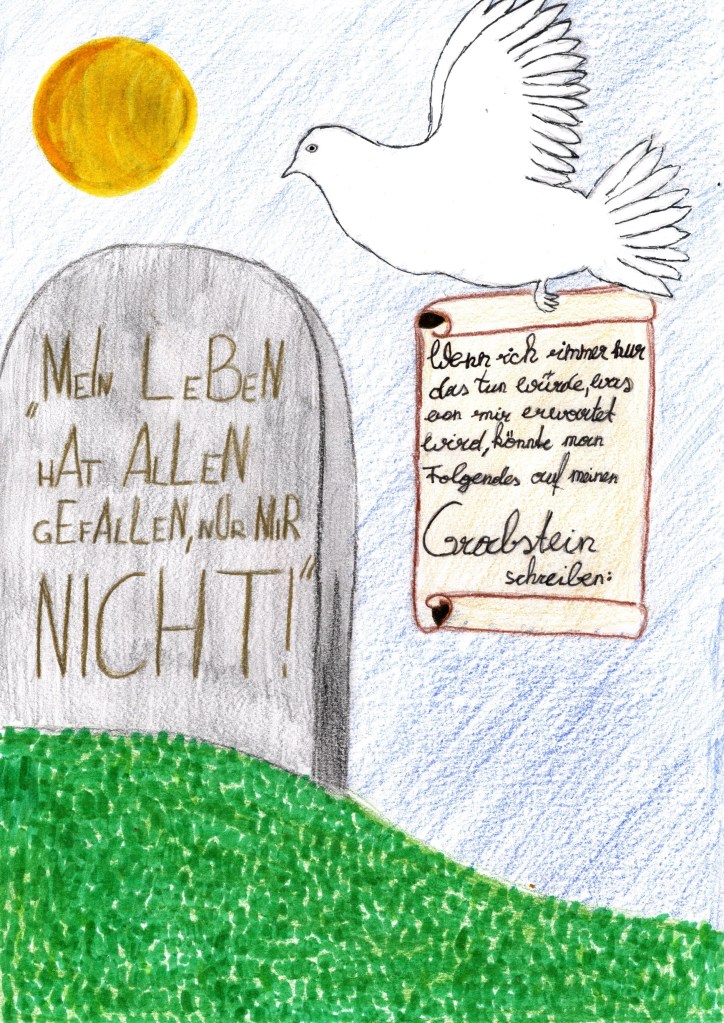 Wenn ich immer nur
das tun würde, was
von mir erwartet
wird, könnte man
Folgendes auf meinen
Grabstein
schreiben:
„MEIN LEBEN
HAT ALLEN
GEFALLEN, NUR MIR
NICHT!“